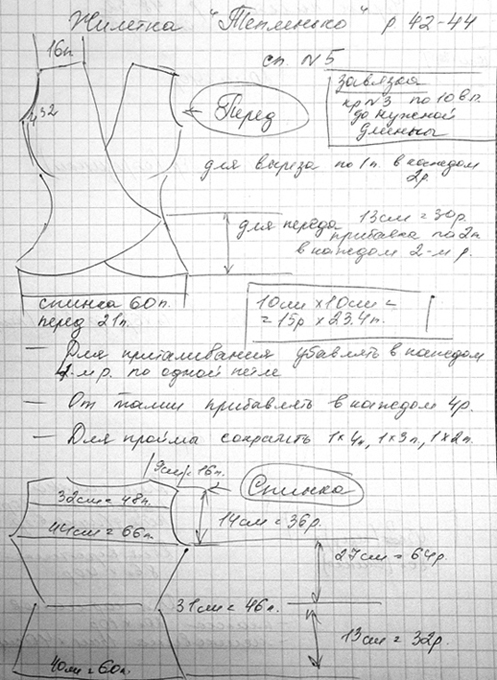 Жилетка "Тепленько" р 42-44
16п.
сп. №5
завязка
кр №3 по 10 в.п.
до нужной
длины
32
Перед
для выреза по 1п. в каждом
2р.
13см = 30р.
для переда прибавка по 2п
в каждом 2-м р.
спинка 60п.
перед 21п.
10см x 10см =
= 15р x 23.4п.
— Для приталивания убавлять в каждом
4-м р. по одной петле
— От талии прибавлять в каждом 4р.
— Для пройма сократить 1x4п, 1x3п, 1x2п.
9см = 16п.
Спинка
32см = 48п.
14см = 36р.
44см = 66п.
27см = 64р.
31см = 46п.
13см = 32р.
40см = 60п.